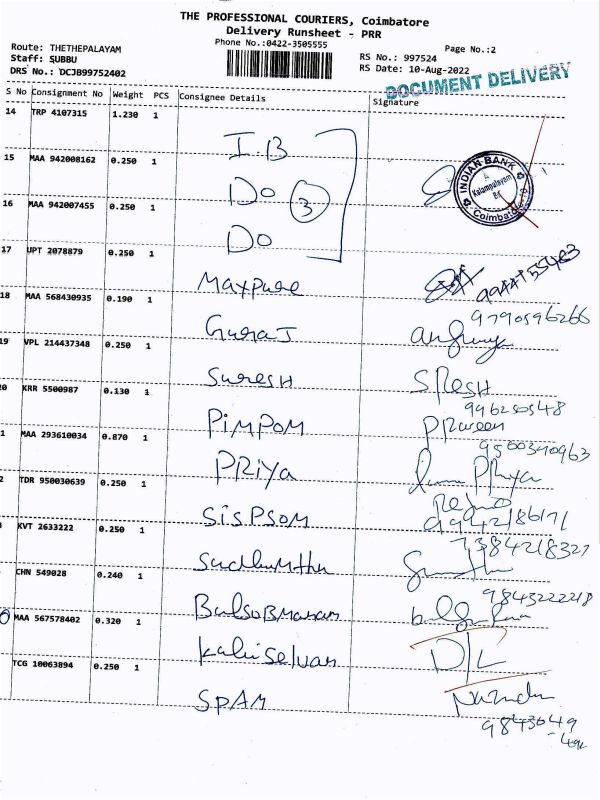 THE PROFESSIONAL COURIERS, Coimbatore
Delivery Runsheet - PRR
Phone No.:0422-3505555
Page No.:2
Route: THETHEPALAYAM
Staff: SUBBU
DRS No.: DCJB99752402
RS No.: 997524
RS Date: 10-Aug-2022
DOCUMENT DELIVERY
S No Consignment No Weight PCS Consignee Details Signature
14 TRP 4107315 1.230 1 I.B
15 MAA 942008162 0.250 1 Do 3
INDIAN BANK
Kalampalayam
Br
Coimbatore
16 MAA 942007455 0.250 1 Do
17 UPT 2078879 0.250 1 Maxpure
18 MAA 568430935 0.190 1 9790596266
19 VPL 214437348 0.250 1 Suresh SResh
0 KRR 5500987 0.130 1 PiMPOM Praveen
996250548
1 MAA 293610034 0.870 1 PRiya Priya
9500340963
2 TDR 950030639 0.250 1 SiSPSOM
9942186171
KVT 2633222 0.250 1 Sudhumthu
7384218327
CHN 549028 0.240 1 BalsoBManam
9843222218
MAA 567578402 0.320 1 Kaliselvan D/L
TCG 10063894 0.250 1 SPAM
9843649
-494